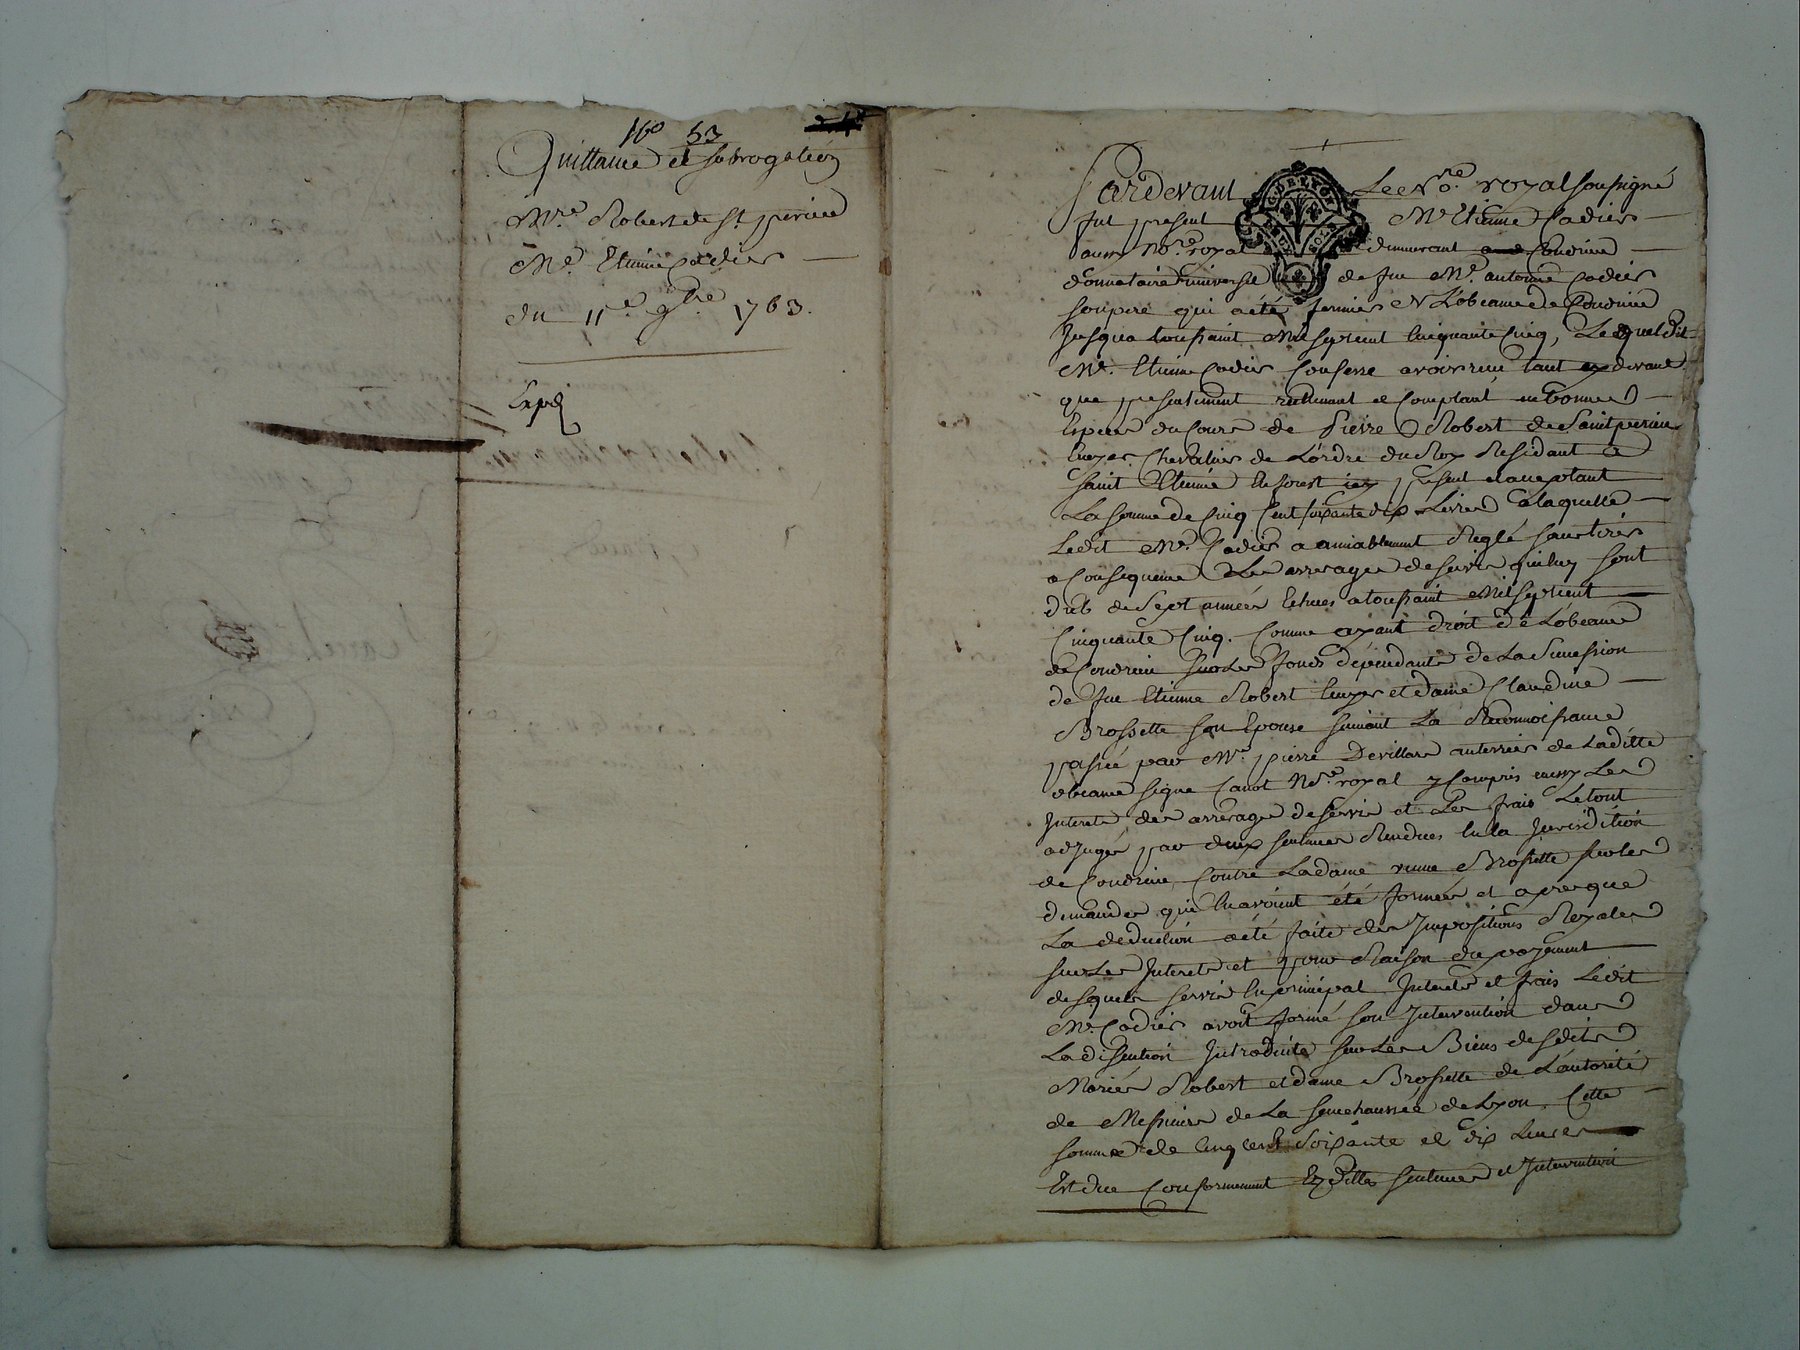 No 53
Quittance et subrogation
Mre. Robert de St. perieu
Me. Etienne Cadier
du 11e. 9bre 1763.
Expé
Pardevant Le No.re royal soussigné
fut present Mr Etienne Cadier
aussy No.re royal demeurant a Condrieu
donnataire universel de feu Me. antoine Cadier
son pere qui a été fermier de L'obeance de Condrieu
Jusqua toussaint Mil sept cent Cinquante Cinq, Lequel dit
Me. Etienne Cadier Confesse avoir reçu tant cy devant
que presentement reellement et Comptant en bonnes
Especes du Cours de Pierre Robert de Saint perieu
Ecuyer Chevalier de L'ordre du Roy Residant a
Saint Etienne En forest icy present et acceptant
La somme de Cinq Cent soixante dix Livres a laquelle
Ledit Me. Cadier a amiablement Reglé sans tirer
a Consequence Les arrerages de servis qui luy sont
dubs de Sept années Echues a toussaint Mil sept cent
Cinquante Cinq. Comme ayant droit de L'obeance
de Condrieu sur Les fonds dépendants de La Succession
de feu Etienne Robert Ecuyer et dame Claudine
Brossette son Epouse suivant La Reconnoissance
passée par Mre. pierre Devillars de Laditte
obeance signé Canot No.re royal y Compris aussy Les
Interets des arrerages de servis et Les frais Le tout
adjugés par deux sentences Rendues En la Jurisdition
de Condrieu Contre La dame veuve Brossette sur les
demandes qui En avoient été formées et apres que
La deduction a été faite des Impositions Royales
sur Les Interets et pour Raison du payement
desquels servis En principal Interets et frais Ledit
Me. Cadier avoit formé son Intervention dans
La discution Introduite sur Les Biens desdits
Mariés Robert et dame Brossette de L'autorité
de Messieurs de La Senechaussée de Lyon, Cette
somme de Cinq cent Soixante et dix Livres
Est due Conformement Esdittes sentences et Intervention